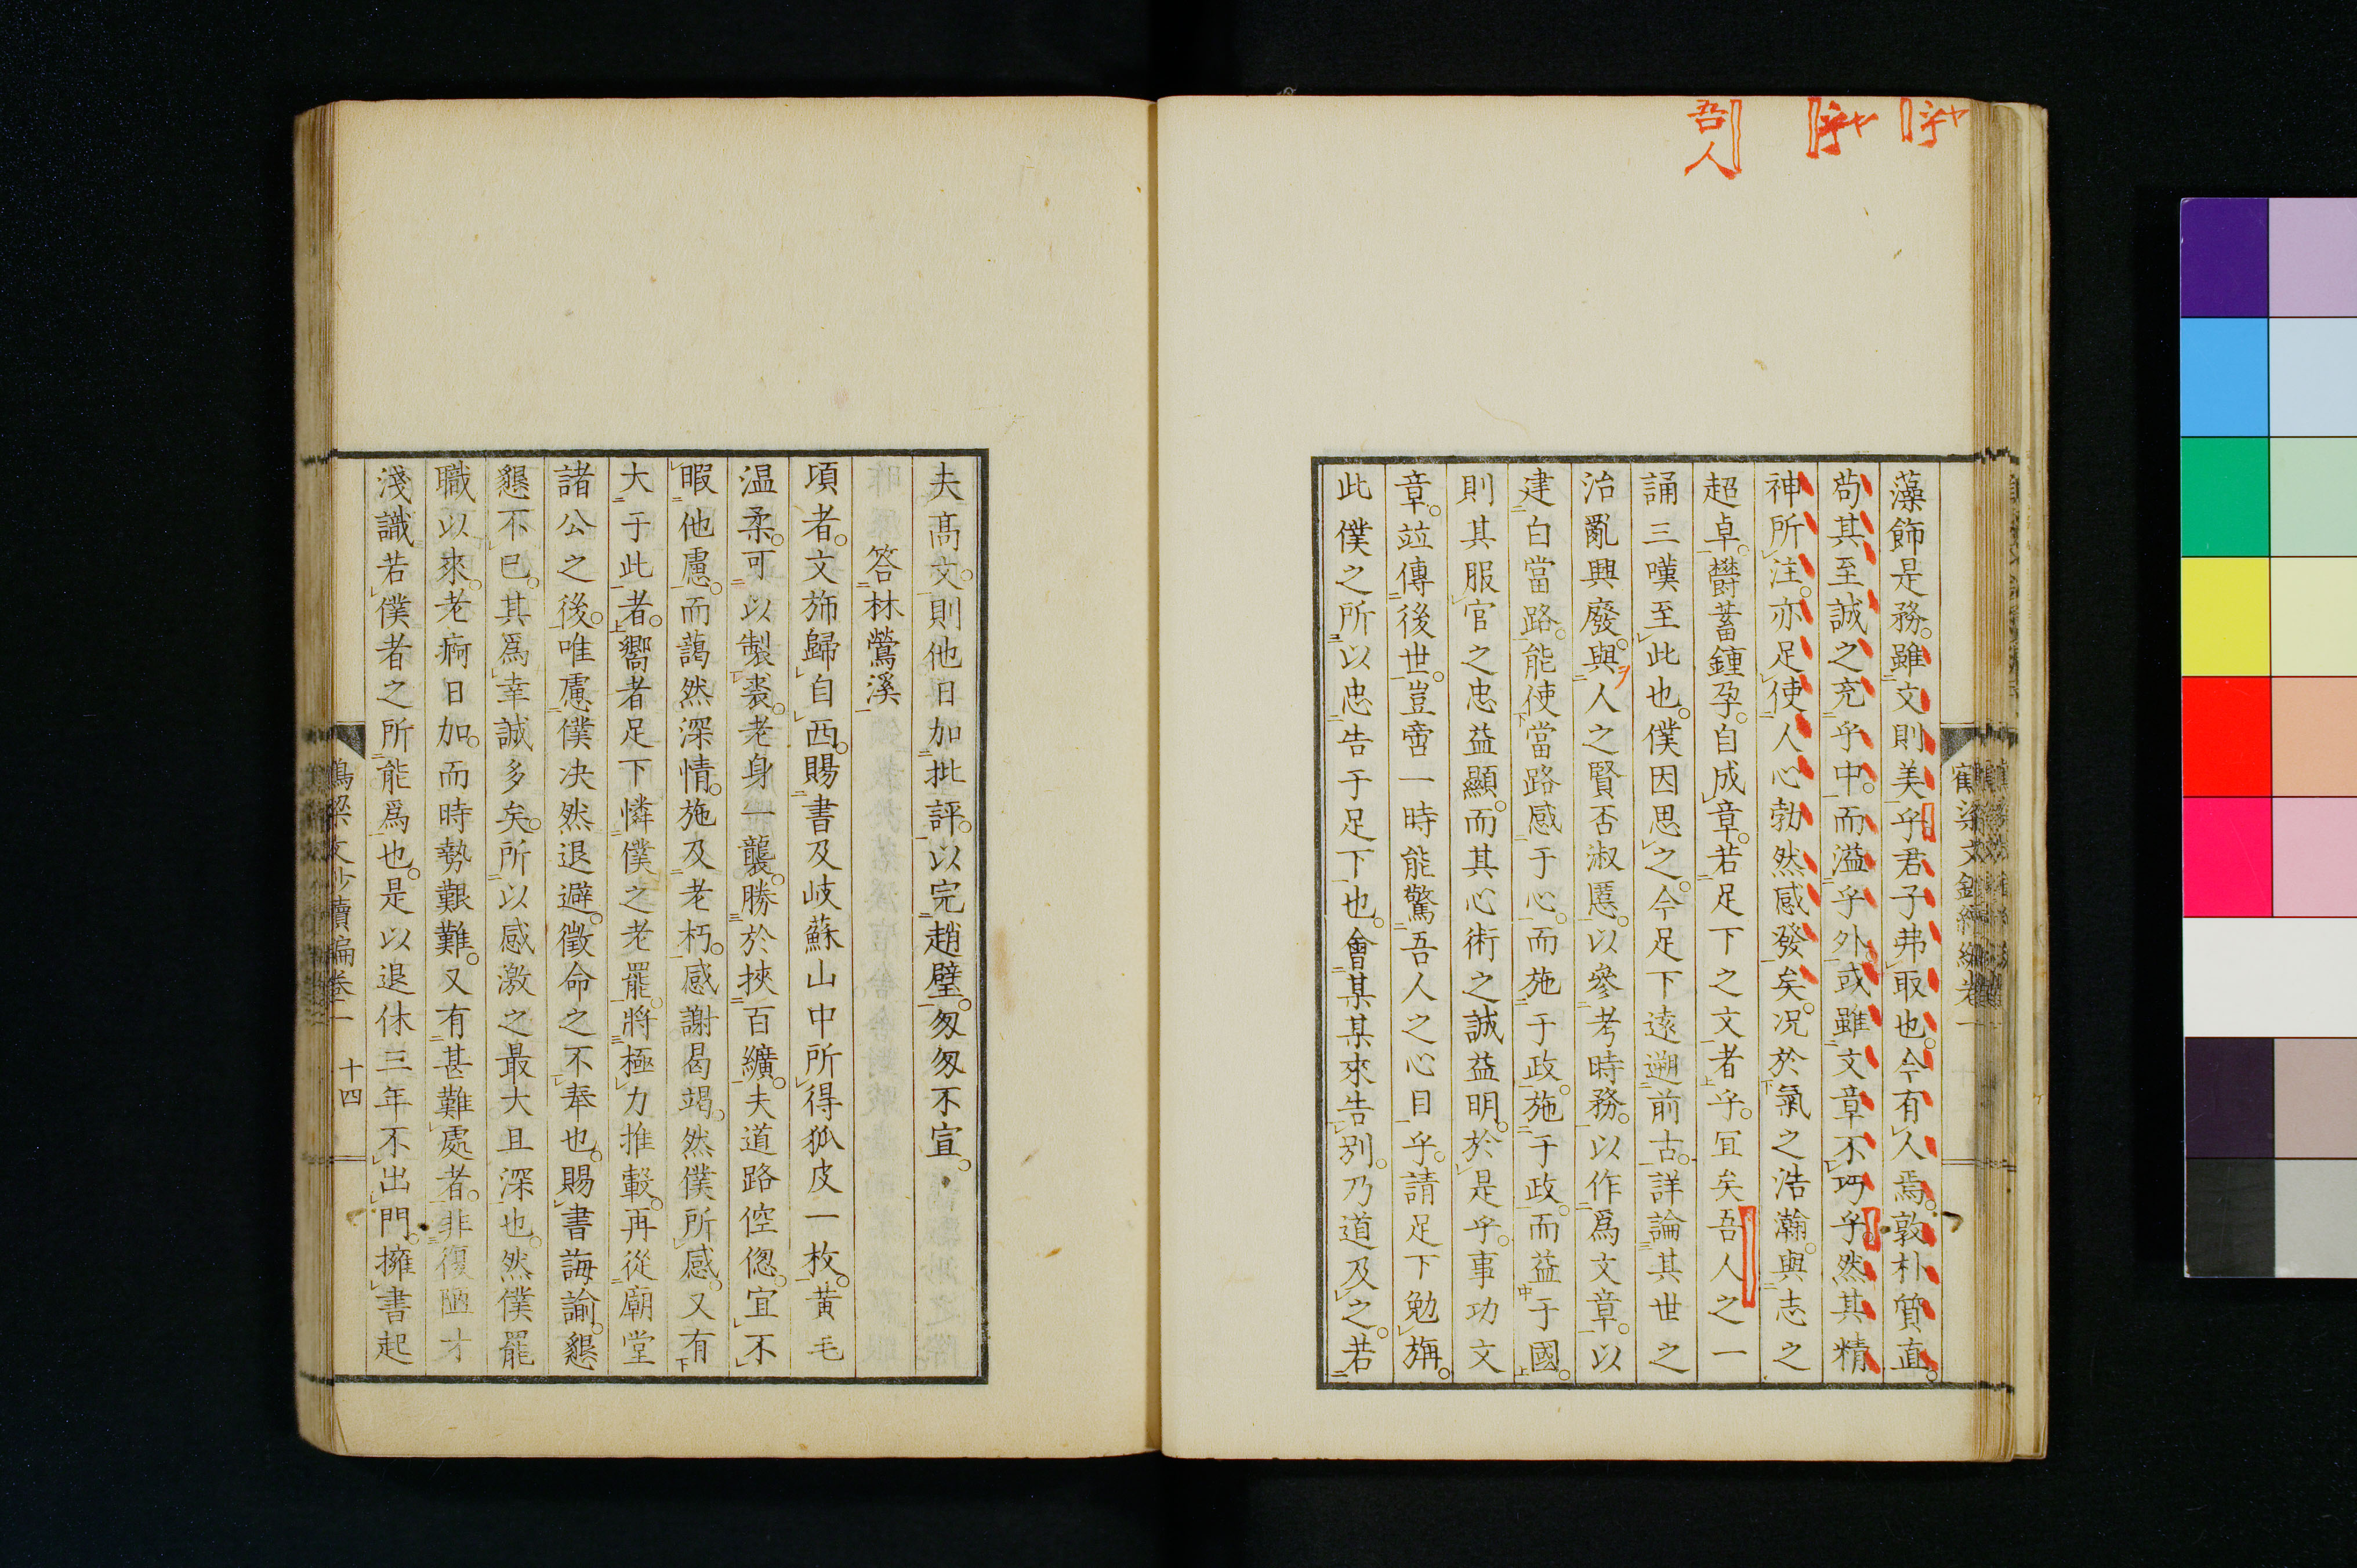 吾人
藻飾是務。雖文則美乎君子弗取也。今有人焉。敦朴質直。
苟其至誠之充乎中。而溢乎外。或雖文章不巧乎。然其精
神所注。亦足使人心勃然感發矣。况於氣之浩瀚。與志之
超卓。欝蓄鍾孕。自成章。若足下之文者乎。冝矣吾人之一
誦三嘆至此也。僕因思之。今足下遠遡前古。詳論其世之
治亂興廢。與人之賢否淑慝。以參考時務。以作爲文章。以
建白當路。能使當路感于心。而施于政。施于政。而益于國。
則其服官之忠益顯。而其心術之誠益明。於是乎。事功文
章。竝傳後世。豈啻一時能驚吾人之心目乎。請足下勉旃。
此僕之所以忠告于足下也。會某某來告別。乃道及之。若
夫高文。則他日加批評。以完趙璧。匆匆不宣。
答林鶯溪
項者。文斾歸自西。賜書及岐蘇山中所得狐皮一枚。黄毛
温柔。可以製裘。老身一襲。勝於挾百纊。夫道路倥偬。宜不
暇他慮。而藹然深情。施及老朽。感謝曷竭。然僕所感。又有
大于此者。嚮者足下憐僕之老罷。將極力推轂。再從廟堂
諸公之後。唯慮僕决然退避。徵命之不奉也。賜書誨諭。懇
懇不已。其爲幸誠多矣。所以感激之最大且深也。然僕罷
職以來。老痾日加。而時勢艱難。又有甚難處者。非復陋才
淺識若僕者之所能爲也。是以退休三年不出門。擁書起
十四